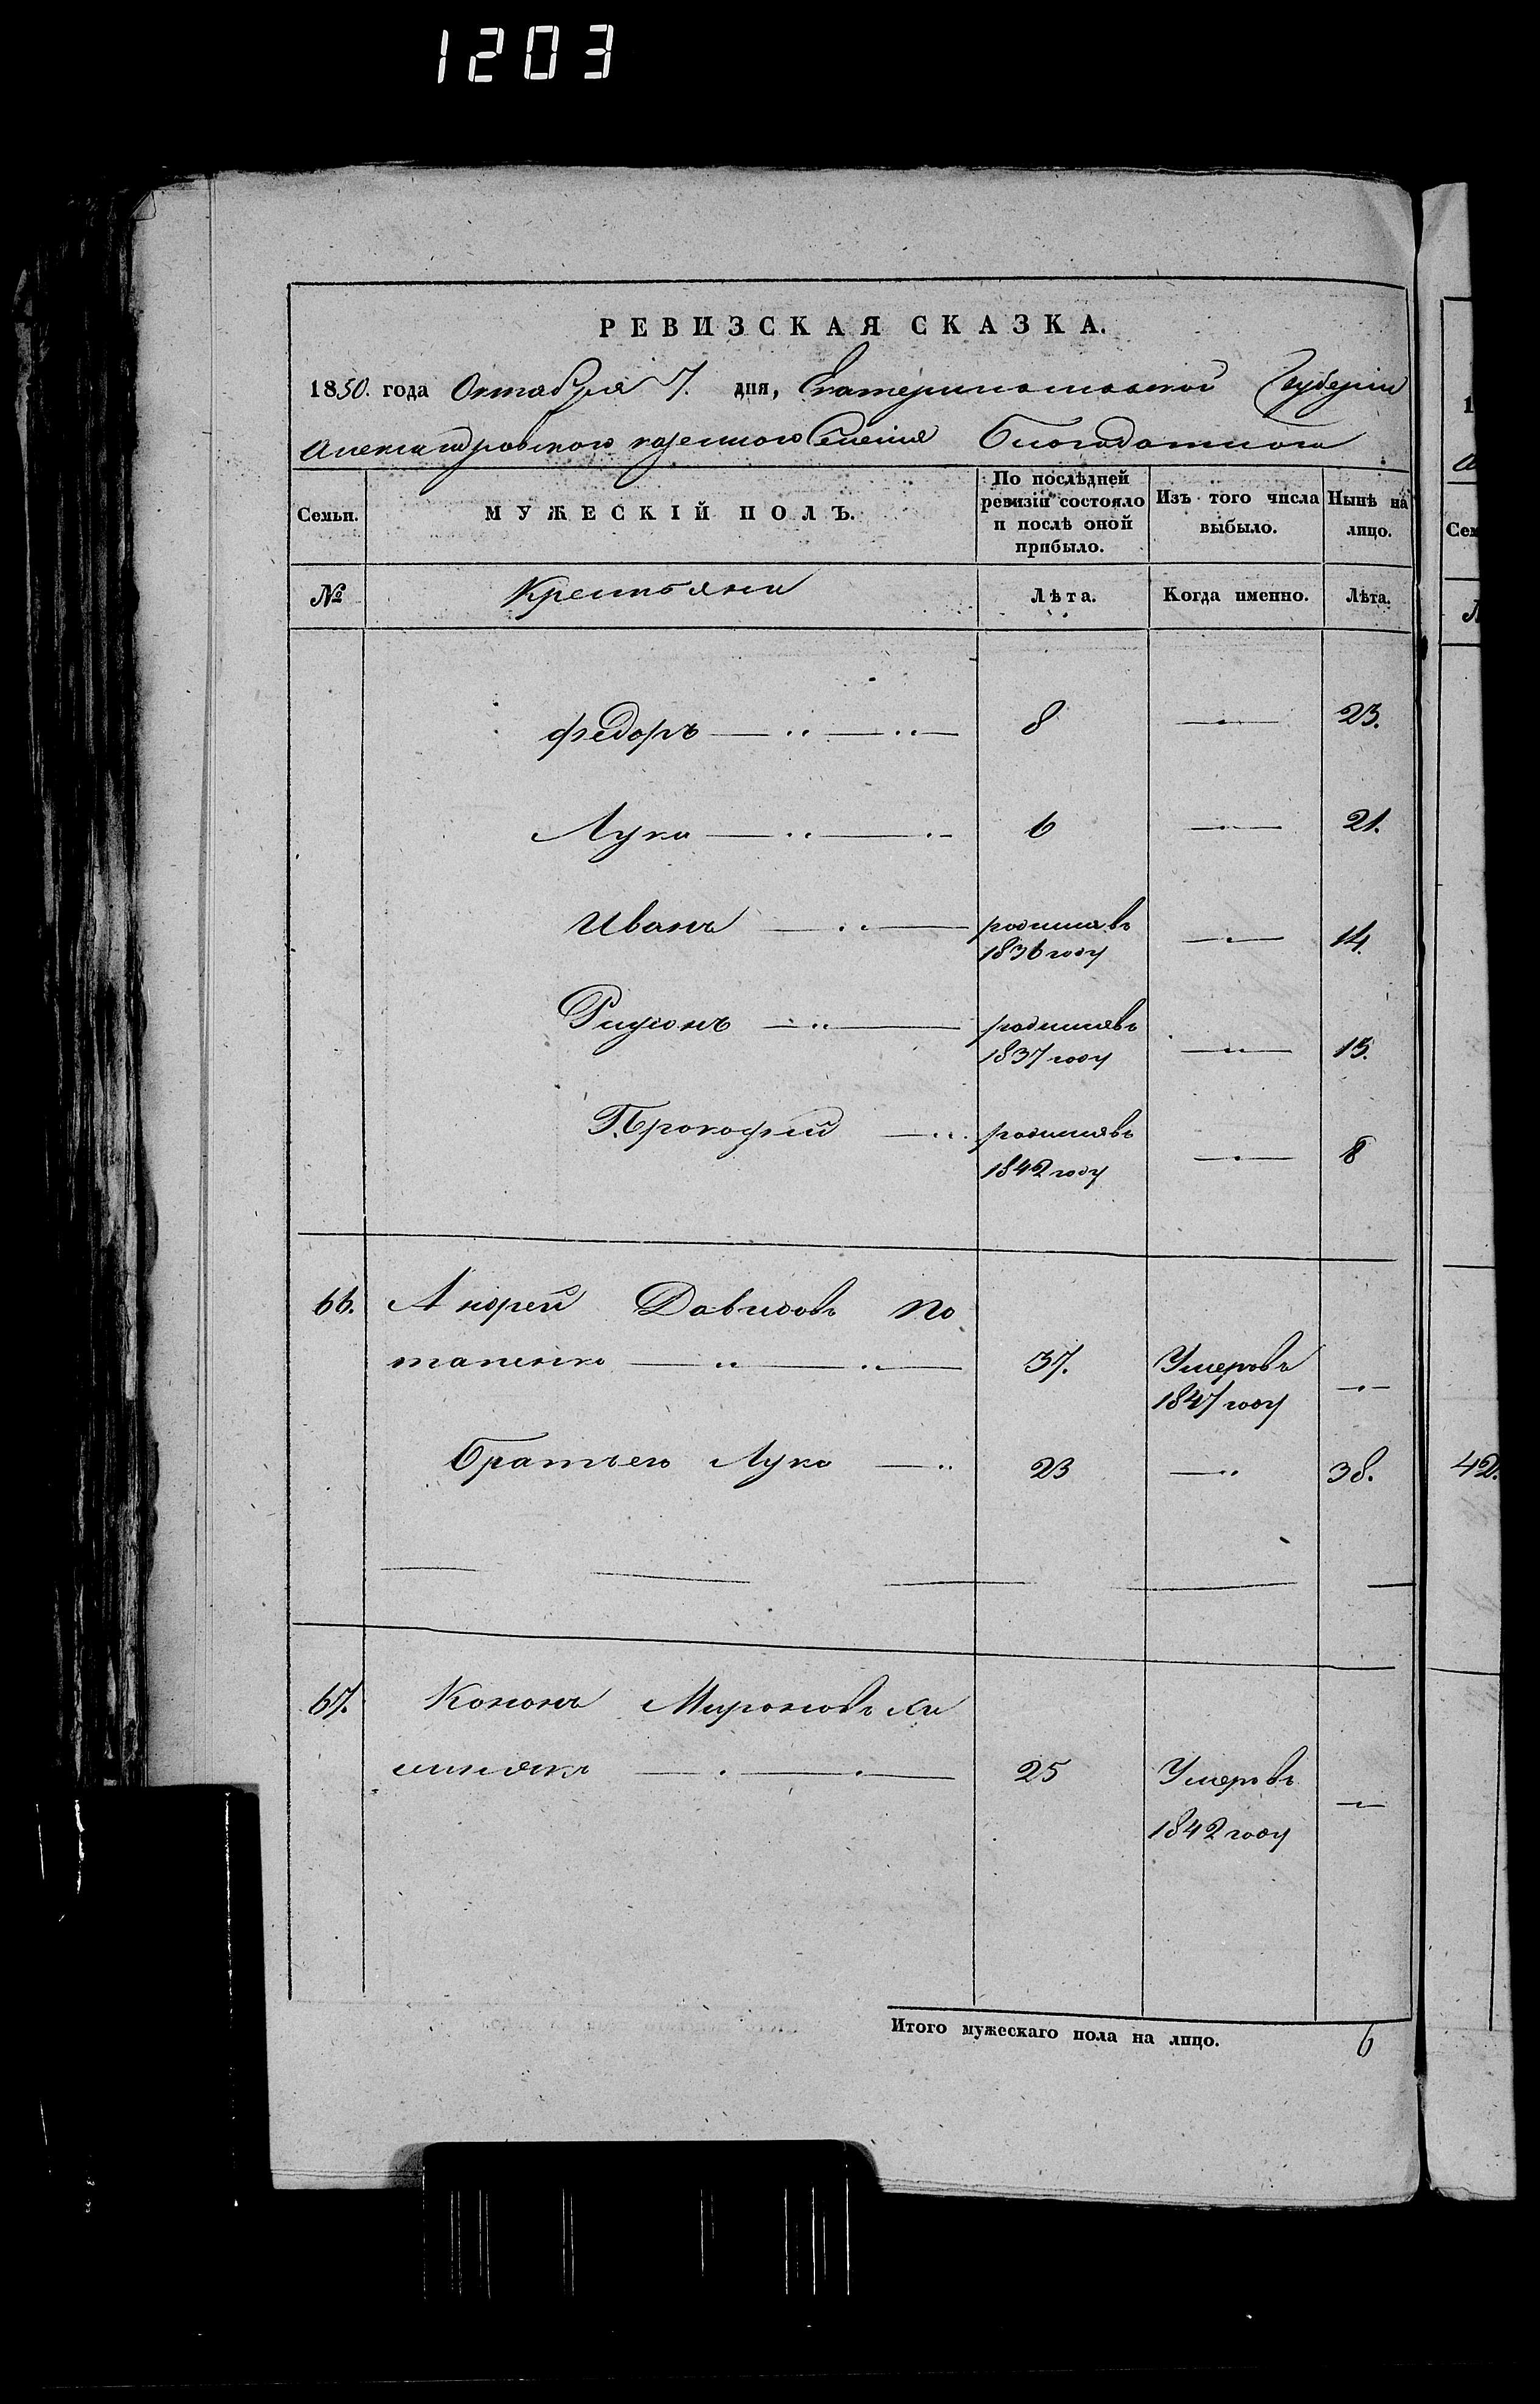 1203
РЕВИЗСКАЯ СКАЗКА.
1850. года Октября 7. дня, Екатеринославской Губерніи
Александровского казенного Селенія Благодатного
Семьи. МУЖЕСКІЙ ПОЛЪ. По послѣдней ревизіи состояло и послѣ оной прибыло. Изъ того числа выбыло. Нынѣ на лицо.
№ Крестьяни Лѣта. Когда именно. Лѣта.
Федоръ 8 23.
Лука 6 21.
Иванъ родился въ 1836 году 14.
родился въ 1837 году 13.
Прокофий родился въ 1842 году 8
66. Андрей Давидовъ По
тапенко 37. Умеръ въ 1847 году
братъ его Лука 23 38.
42.
67. Кононъ Мироновъ
25 Умеръ въ
1842 году
Итого мужескаго пола на лицо. 6